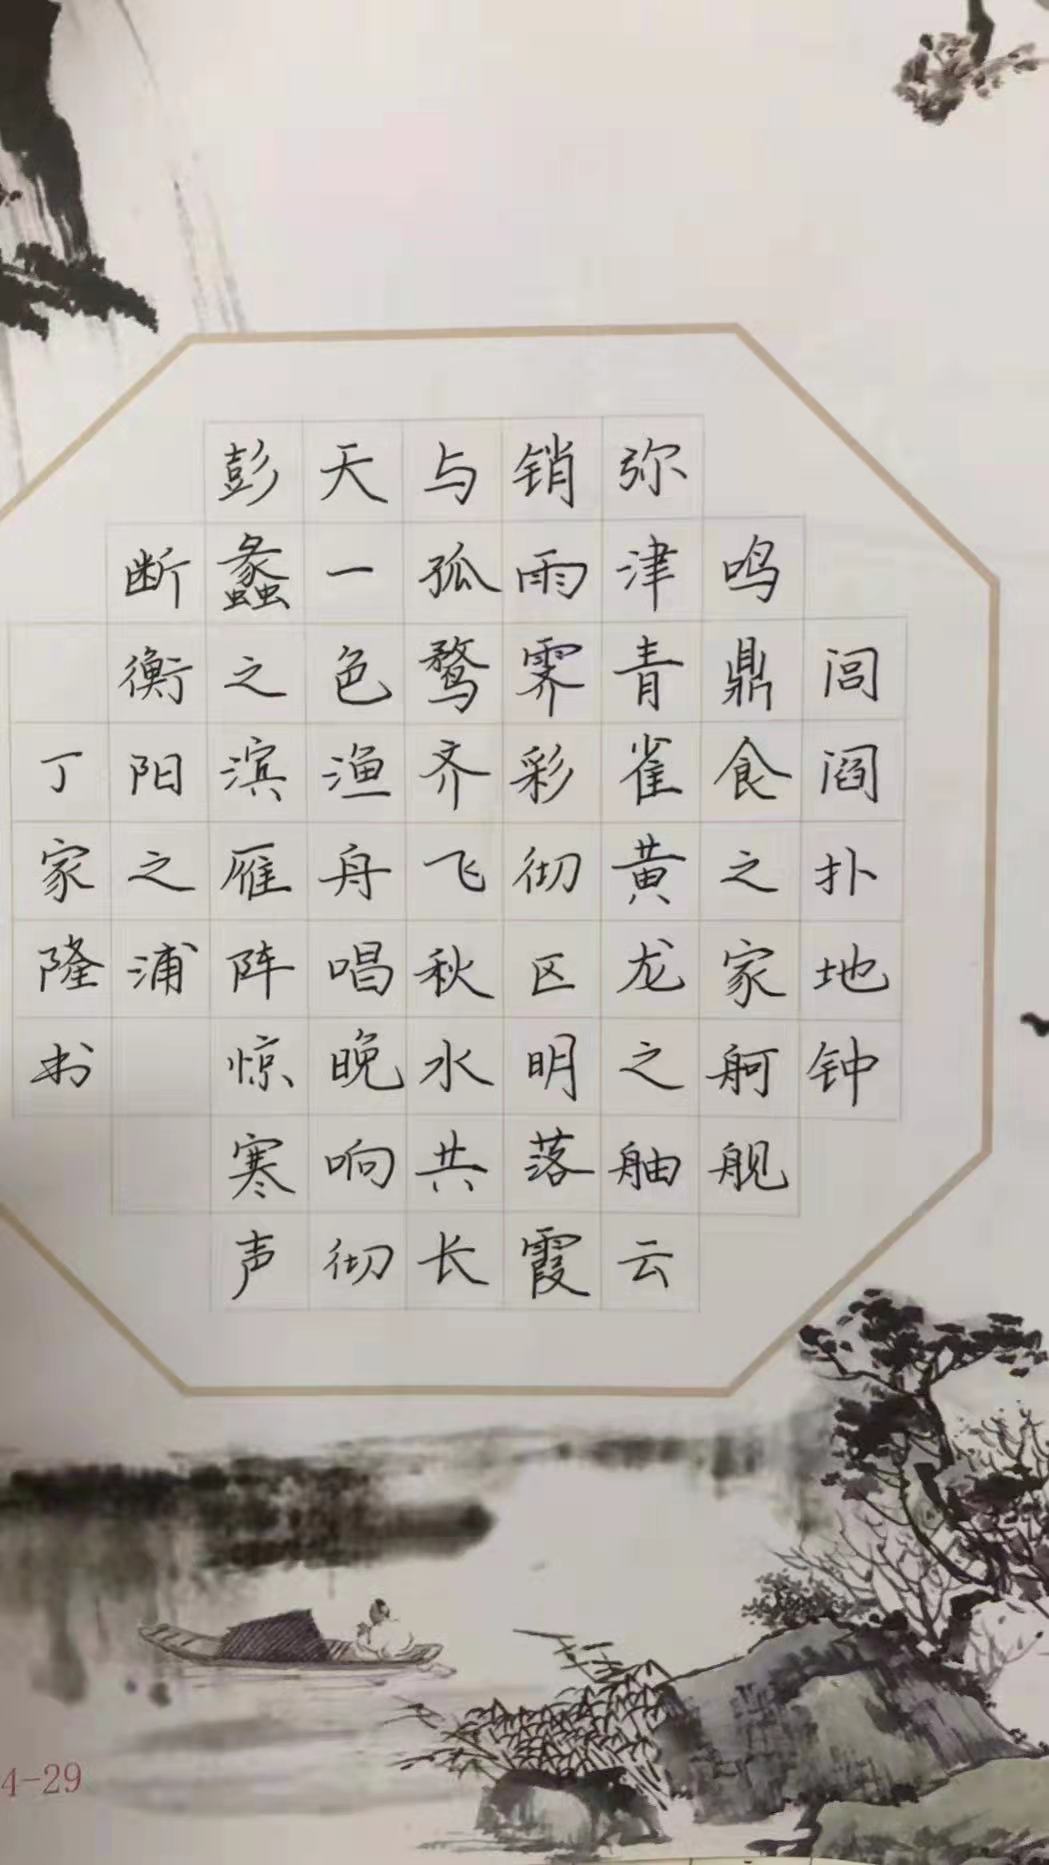 闾阎扑地钟
鸣鼎食之家舸舰
弥津青雀黄龙之舳云
销雨霁彩彻区明落霞
与孤鹜齐飞秋水共长
天一色渔舟唱晚响彻
彭蠡之滨雁阵惊寒声
断衡阳之浦
丁家隆书
4-29